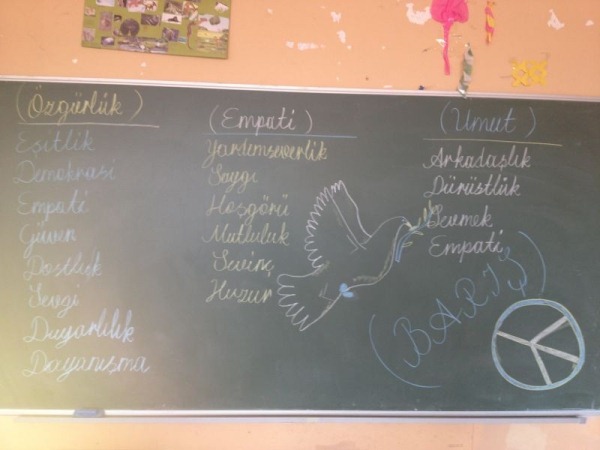 (Özgürlük)
Eşitlik
Demokrasi
Empati
Güven
Dostluk
Sevgi
Duyarlılık
Dayanışma
(Empati)
Yardımseverlik
Saygı
Hoşgörü
Mutluluk
Sevinç
Huzur
(Umut)
Arkadaşlık
Dürüstlük
Sevmek
Empati
(BARIŞ)